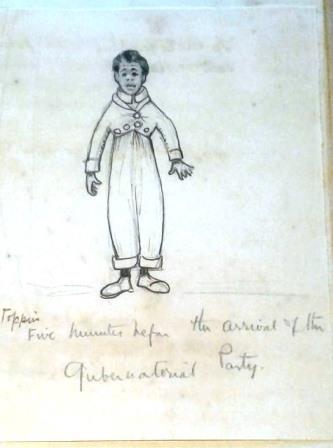 Toppin
Five minutes before the arrival of the
Gubernatorial Party.